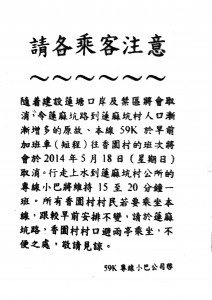 請各乘客注意
～～～～～～
隨着建設蓮塘口岸及禁區將會取
消,令蓮麻坑路到蓮麻坑村人口漸
漸增多的原故、本線 59K 於早前
加班車(短程)往香園村的班次將
會於 2014 年 5 月 18 日(星期日)
取消。行走上水到蓮麻坑村公所的
專線小巴將維持 15 至 20 分鐘一
班。所有香園村村民若要乘坐本
線,跟較早前安排不變,請於蓮麻
坑路,香園村村口避雨亭乘坐,不
便之處,敬請見諒。
59K 專線小巴公司啓